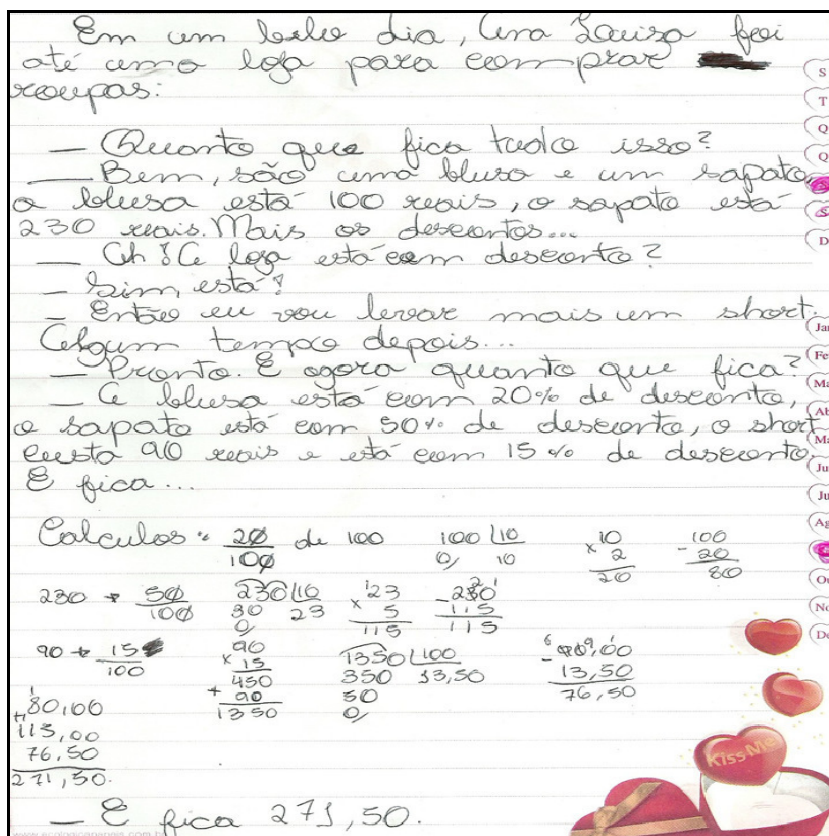 Em um belo dia, Ana Laiza foi
até uma loja para comprar
roupas:
— Quanto que fica tudo isso?
— Bem, são uma blusa e um sapato,
a blusa está 100 reais, o sapato está
230 reais. Mais os descontos...
— Ah! A loja está com desconto?
— Sim, está!
— Então eu vou levar mais um short.
Algum tempo depois...
— Pronto. E agora quanto que fica?
— A blusa está com 20% de desconto,
o sapato está com 50% de desconto, o short
custa 90 reais e está com 15% de desconto.
E fica...
Calculos: 20/100 de 100 100 |10 0 10 10 × 2 20 100 - 20 80
230 50/100 230 |10 30 23 0 23 × 5 115 - 230 115 115
90 15/100 90 × 15 450 + 90 1350 1350 |100 350 13,50 50 0 - 90,00 13,50 76,50
80,00
115,00
76,50
271,50.
— E fica 271,50.
Kiss Me
S
T
Q
Q
S
D
Jan
Fe
Ma
Ab
Ma
Ju
Ju
Ag
Ou
No
De